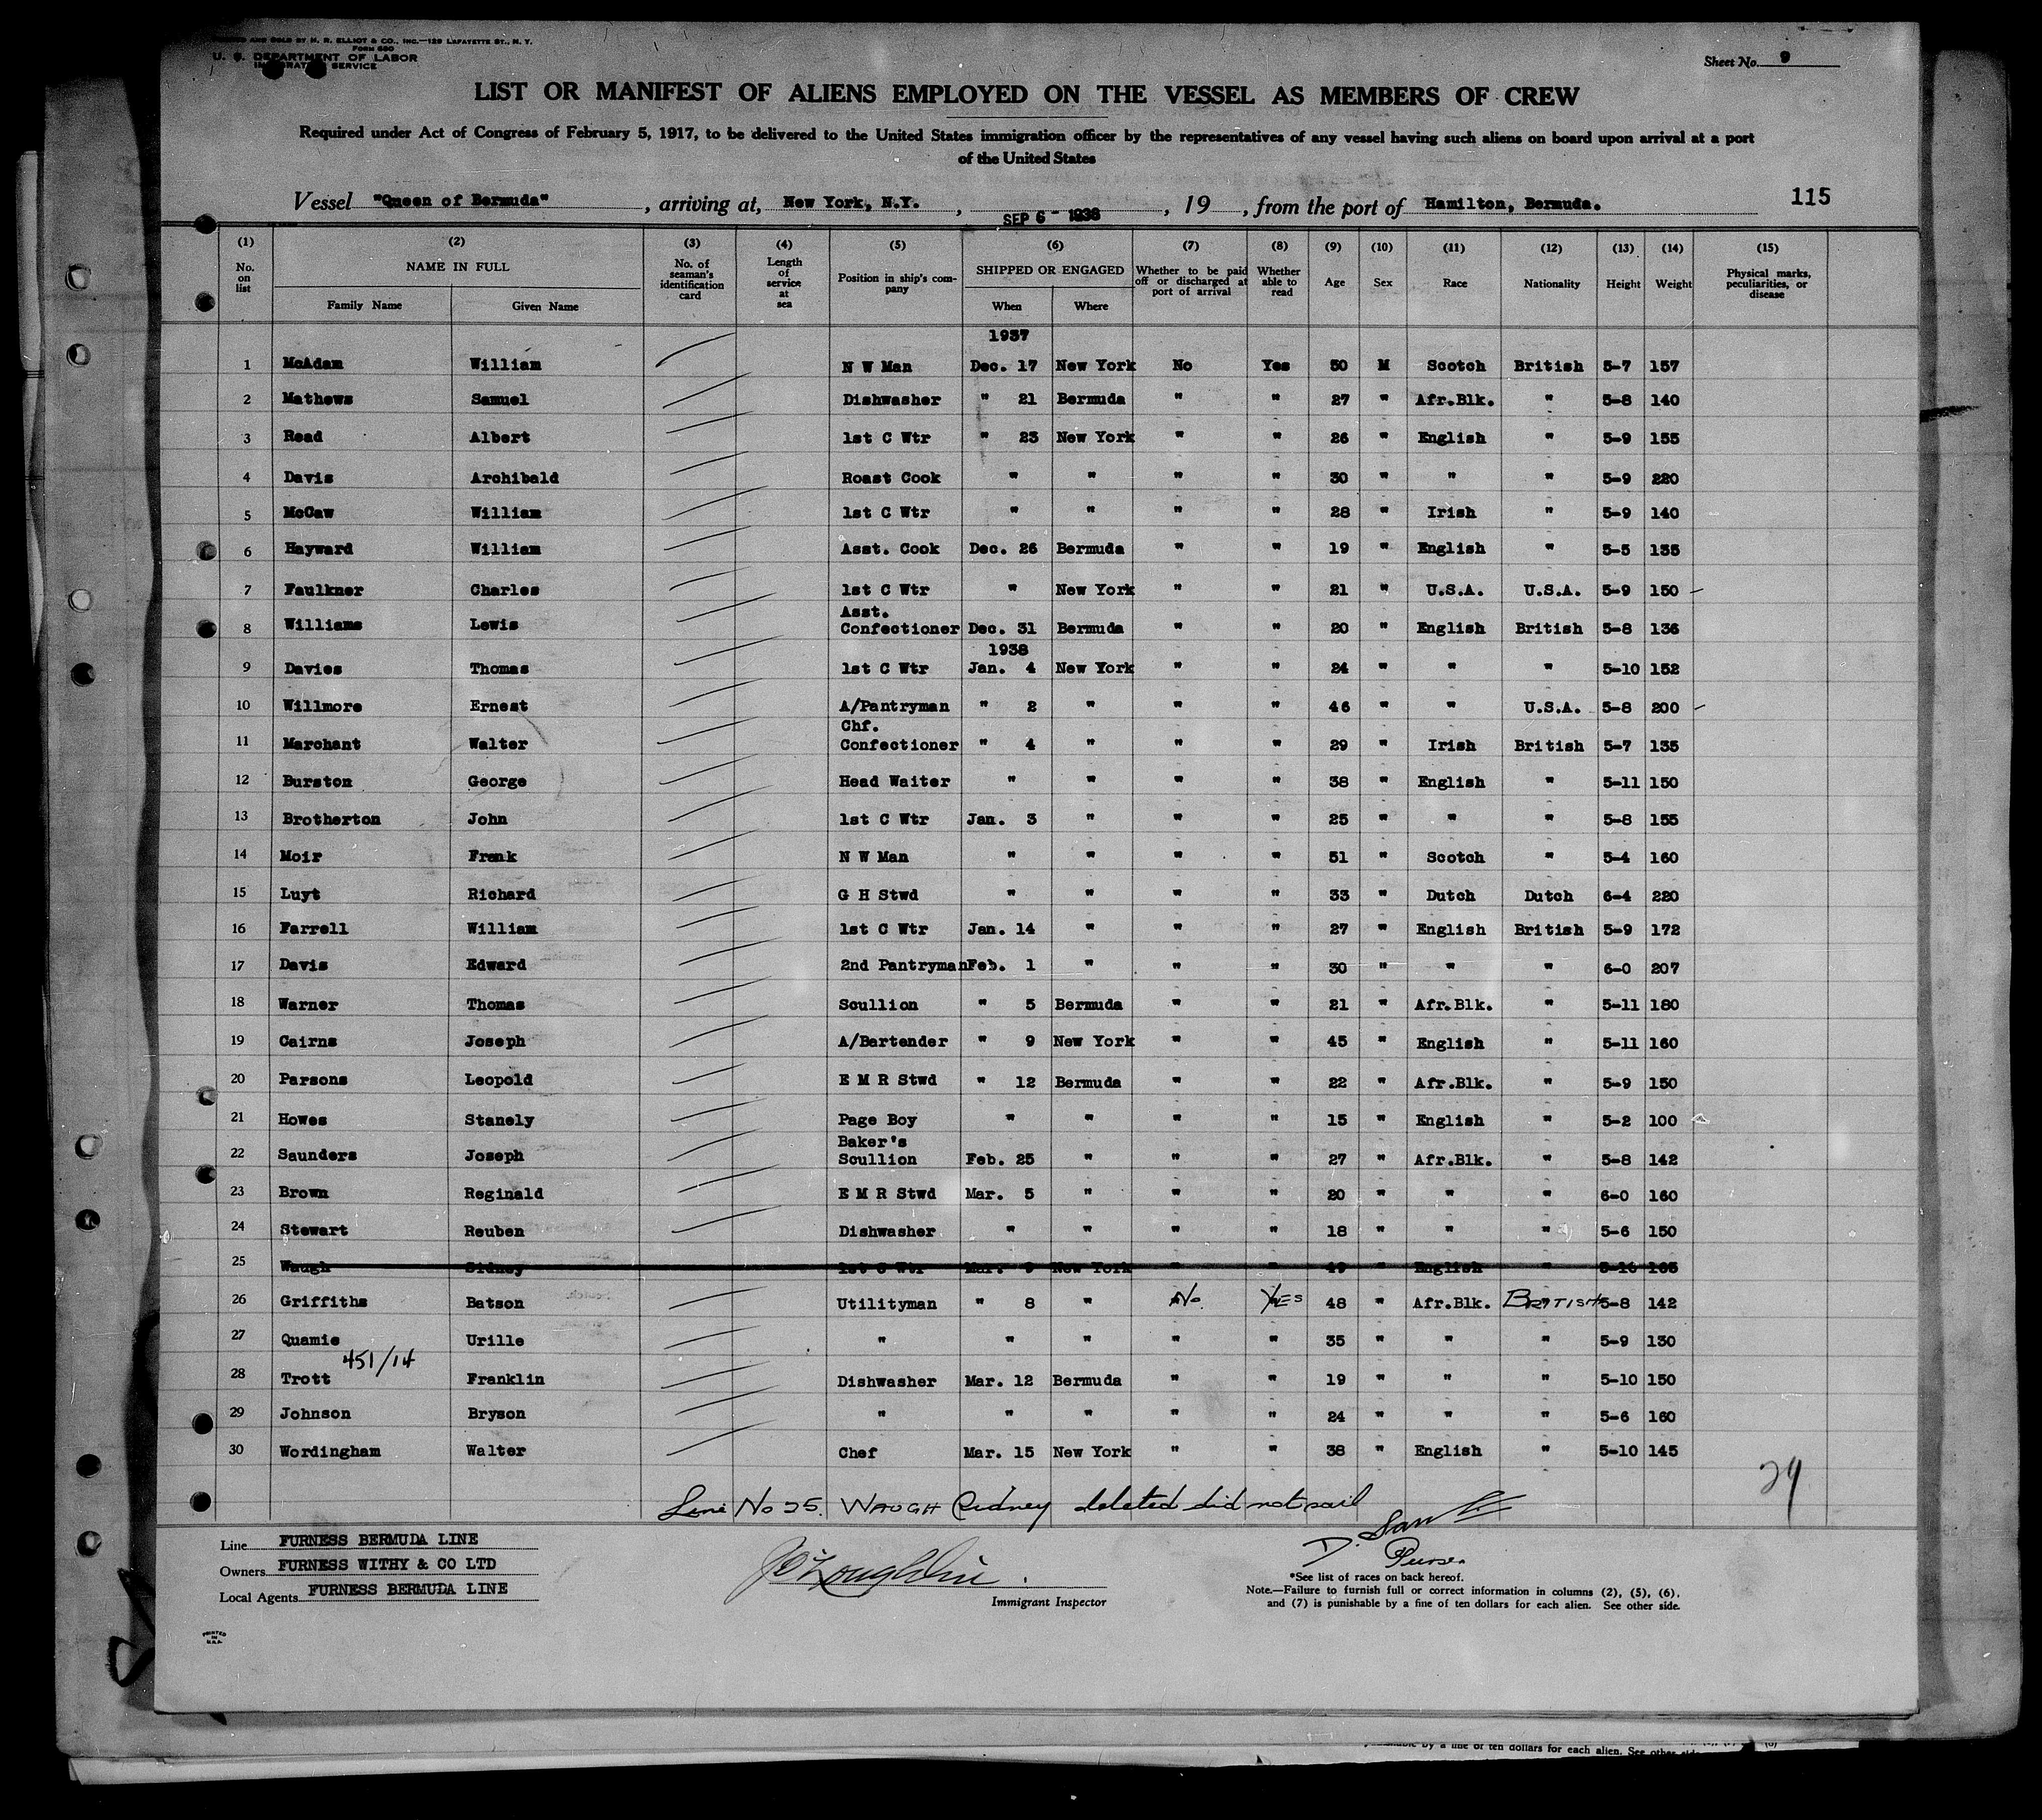 AND SOLD BY H. R. ELLIOT & CO., INC.—129 LAFAYETTE ST., N. Y.
FORM 680
U. S. DEPARTMENT OF LABOR
IMMIGRATION SERVICE
Sheet No. 9
LIST OR MANIFEST OF ALIENS EMPLOYED ON THE VESSEL AS MEMBERS OF CREW
Required under Act of Congress of February 5, 1917, to be delivered to the United States immigration officer by the representatives of any vessel having such aliens on board upon arrival at a port
of the United States
Vessel "Queen of Bermuda", arriving at, New York, N.Y., SEP 6 - 1938, 19 , from the port of Hamilton, Bermuda. 115
(1) (2) (3) (4) (5) (6) (7) (8) (9) (10) (11) (12) (13) (14) (15)
No. on list NAME IN FULL Family Name Given Name No. of seaman's identification card Length of service at sea Position in ship's company SHIPPED OR ENGAGED When Where Whether to be paid off or discharged at port of arrival Whether able to read Age Sex Race Nationality Height Weight Physical marks, peculiarities, or disease
1937
1 McAdam William N W Man Dec. 17 New York No Yes 50 M Scotch British 5-7 157
2 Mathews Samuel Dishwasher " 21 Bermuda " " 27 " Afr.Blk. " 5-8 140
3 Read Albert 1st C Wtr " 23 New York " " 26 " English " 5-9 155
4 Davis Archibald Roast Cook " " " " 30 " " " 5-9 220
5 McCaw William 1st C Wtr " " " " 28 " Irish " 5-9 140
6 Hayward William Asst. Cook Dec. 26 Bermuda " " 19 " English " 5-5 135
7 Faulkner Charles 1st C Wtr " New York " " 21 " U.S.A. U.S.A. 5-9 150
Asst.
8 Williams Lewis Confectioner Dec. 31 Bermuda " " 20 " English British 5-8 136
1938
9 Davies Thomas 1st C Wtr Jan. 4 New York " " 24 " " " 5-10 152
10 Willmore Ernest A/Pantryman " 2 " " " 46 " " U.S.A. 5-8 200
Chf.
11 Marchant Walter Confectioner " 4 " " " 29 " Irish British 5-7 135
12 Burston George Head Waiter " " " " 38 " English " 5-11 150
13 Brotherton John 1st C Wtr Jan. 3 " " " 25 " " " 5-8 155
14 Moir Frank N W Man " " " " 51 " Scotch " 5-4 160
15 Luyt Richard G H Stwd " " " " 33 " Dutch Dutch 6-4 220
16 Farrell William 1st C Wtr Jan. 14 " " " 27 " English British 5-9 172
17 Davis Edward 2nd Pantryman Feb. 1 " " " 30 " " " 6-0 207
18 Warner Thomas Scullion " 5 Bermuda " " 21 " Afr.Blk. " 5-11 180
19 Cairns Joseph A/Bartender " 9 New York " " 45 " English " 5-11 160
20 Parsons Leopold E M R Stwd " 12 Bermuda " " 22 " Afr.Blk. " 5-9 150
21 Howes Stanely Page Boy " " " " 15 " English " 5-2 100
Baker's
22 Saunders Joseph Scullion Feb. 25 " " " 27 " Afr.Blk. " 5-8 142
23 Brown Reginald E M R Stwd Mar. 5 " " " 20 " " " 6-0 160
24 Stewart Reuben Dishwasher " " " " 18 " " " 5-6 150
25 Waugh Sidney 1st C Wtr Mar. 9 New York " " 49 " English " 5-10 165
26 Griffiths Batson Utilityman " 8 " No. YES 48 " Afr.Blk. BRITISH 5-8 142
27 Quamie Urille " " " " " 35 " " " 5-9 130
451/14
28 Trott Franklin Dishwasher Mar. 12 Bermuda " " 19 " " " 5-10 150
29 Johnson Bryson " " " " " 24 " " " 5-6 160
30 Wordingham Walter Chef Mar. 15 New York " " 38 " English " 5-10 145
29
Line No 25. WAUGH Sidney deleted did not sail
Line FURNESS BERMUDA LINE
Owners FURNESS WITHY & CO LTD
Local Agents FURNESS BERMUDA LINE
Immigrant Inspector
Purser
*See list of races on back hereof.
Note.—Failure to furnish full or correct information in columns (2), (5), (6), and (7) is punishable by a fine of ten dollars for each alien. See other side.
PRINTED IN U.S.A.
by a fine of ten dollars for each alien. See other side